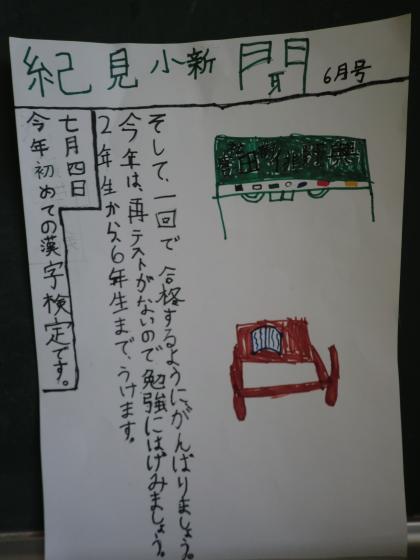 紀見小新聞
6月号
七月四日
今年初めての漢字検定です。
2年生から6年生まで、うけます。
今年は、再テストがないので勉強にはげみましょう。
そして、一回で合格するように、がんばりましょう。